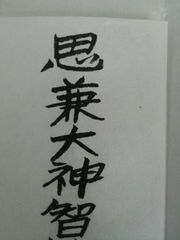 思兼大神智